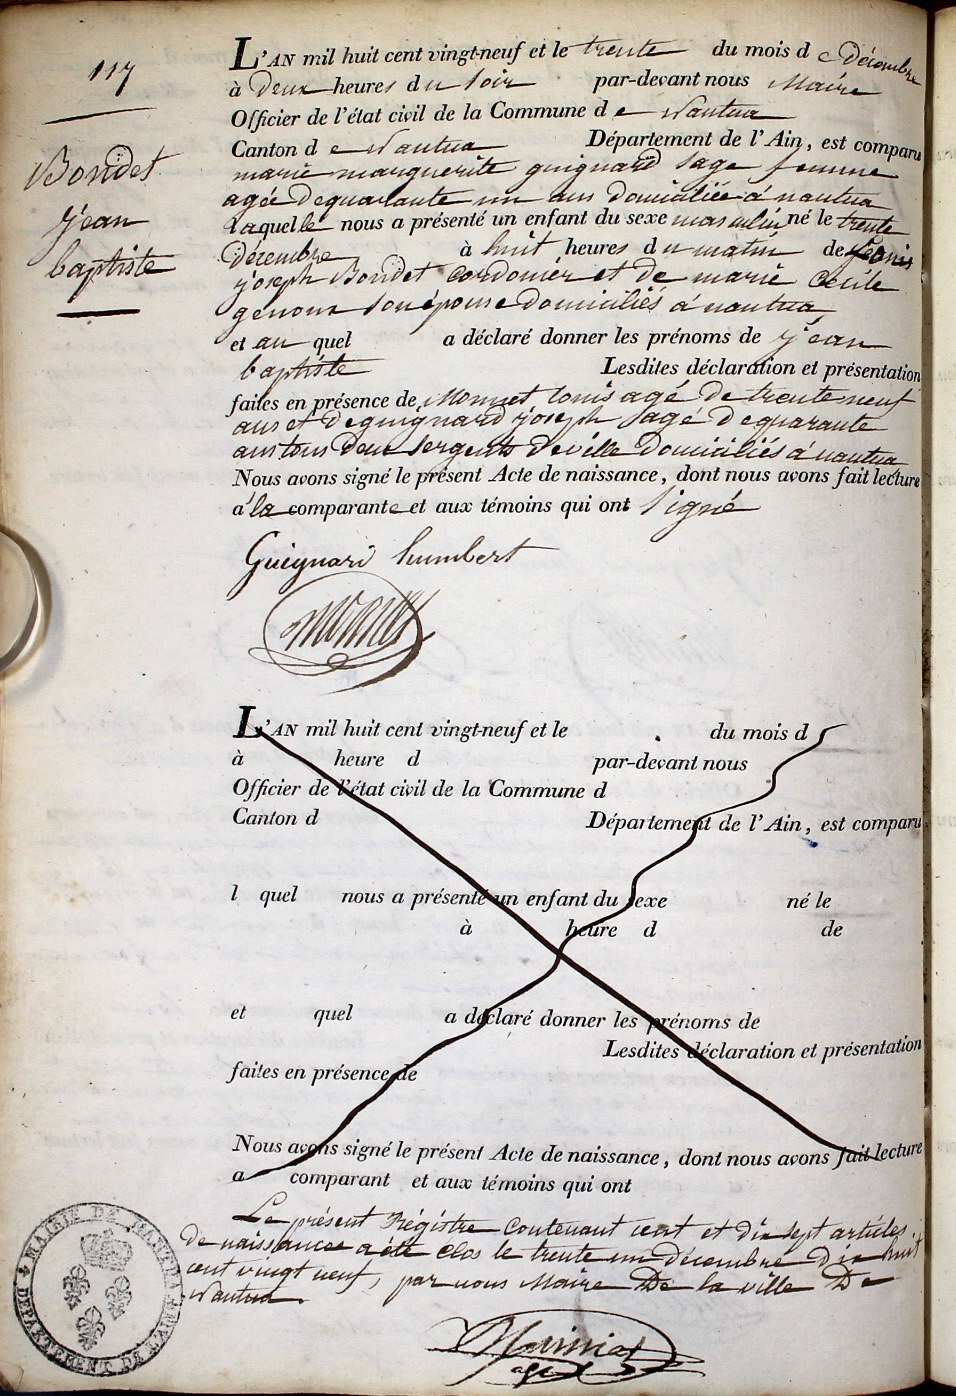 117
Bondet
jean
baptiste
L'AN mil huit cent vingt-neuf et le trente du mois de décembre
à deux heures du soir par-devant nous Maire
Officier de l'état civil de la Commune de Nantua
Canton de Nantua Département de l'Ain, est comparu
marie marguerite guignard sage femme
agée de quarante un ans domiciliée à nantua
laquelle nous a présenté un enfant du sexe masculin né le trente
décembre à huit heures du matin de
joseph Bondet cordonier et de marie cecile
genoux son épouse domiciliés à nantua
et au quel a déclaré donner les prénoms de jean
baptiste Lesdites déclaration et présentation
faites en présence de Monnet louis agé de trente neuf
ans et de guignard joseph agé de quarante
ans tous deux sergents de ville domiciliés à nantua
Nous avons signé le présent Acte de naissance, dont nous avons fait lecture
à la comparante et aux témoins qui ont signé
Guignard humbert
L'AN mil huit cent vingt-neuf et le du mois d
à heure d par-devant nous
Officier de l'état civil de la Commune d
Canton d Département de l'Ain, est comparu
l quel nous a présenté un enfant du sexe né le
à heure d de
et quel a déclaré donner les prénoms de
Lesdites déclaration et présentation
faites en présence de
Nous avons signé le présent Acte de naissance, dont nous avons fait lecture
a comparant et aux témoins qui ont
Le présent Régistre contenant cent et dix sept articles
de naissances a été clos le trente un décembre dix huit
cent vingt neuf, par nous Maire De la ville De
Nantua.
MAIRIE DE NANTUA
DEPARTEMENT DE L'AIN